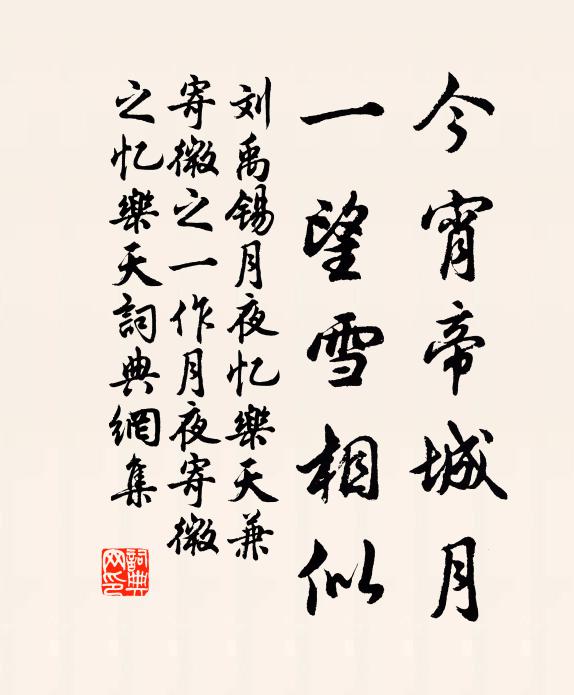 今宵帝城月
一望雪相似
刘禹锡月夜忆樂天兼
寄微之一作月夜寄微
之忆樂天詞典網集
詞典
网印